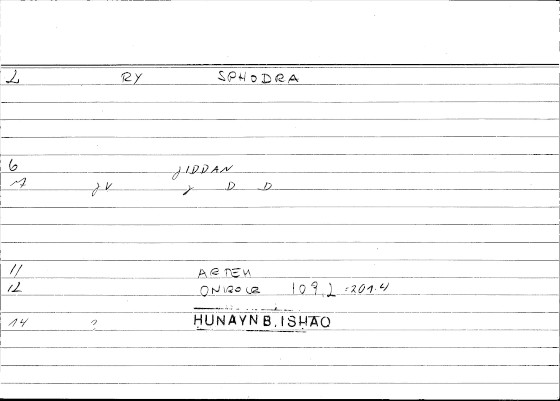 2 RY SPHODRA
6 JIDDAN
JV J D D
11 ARTEM
12 ONIROCR 109,2 = 201.4
14 2 HUNAYN B. ISHAQ